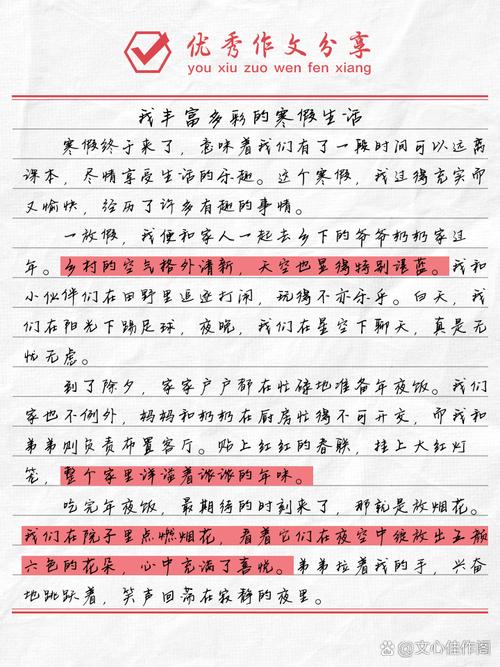 优秀作文分享
you xiu zuo wen fen xiang
我丰富多彩的寒假生活
寒假终于来了，意味着我们有了一段时间可以远离
课本，尽情享受生活的乐趣。这个寒假，我过得充实而
又愉快，经历了许多有趣的事情。
一放假，我便和家人一起去乡下的爷爷奶奶家过
年。乡村的空气格外清新，天空也显得特别湛蓝。我和
小伙伴们在田野里追逐打闹，玩得不亦乐乎。白天，我
们在阳光下踢足球，夜晚，我们在星空下聊天，真是无
忧无虑。
到了除夕，家家户户都在忙碌地准备年夜饭。我们
家也不例外，妈妈和奶奶在厨房忙得不可开交，而我和
弟弟则负责布置客厅。贴上红红的春联，挂上大红灯
笼，整个家里洋溢着浓浓的年味。
吃完年夜饭，最期待的时刻来了，那就是放烟花。
我们在院子里点燃烟花，看着它们在夜空中绽放出五颜
六色的花朵，心中充满了喜悦。弟弟拉着我的手，兴奋
地跳跃着，笑声回荡在寂静的夜里。
知乎 @文心佳作阁